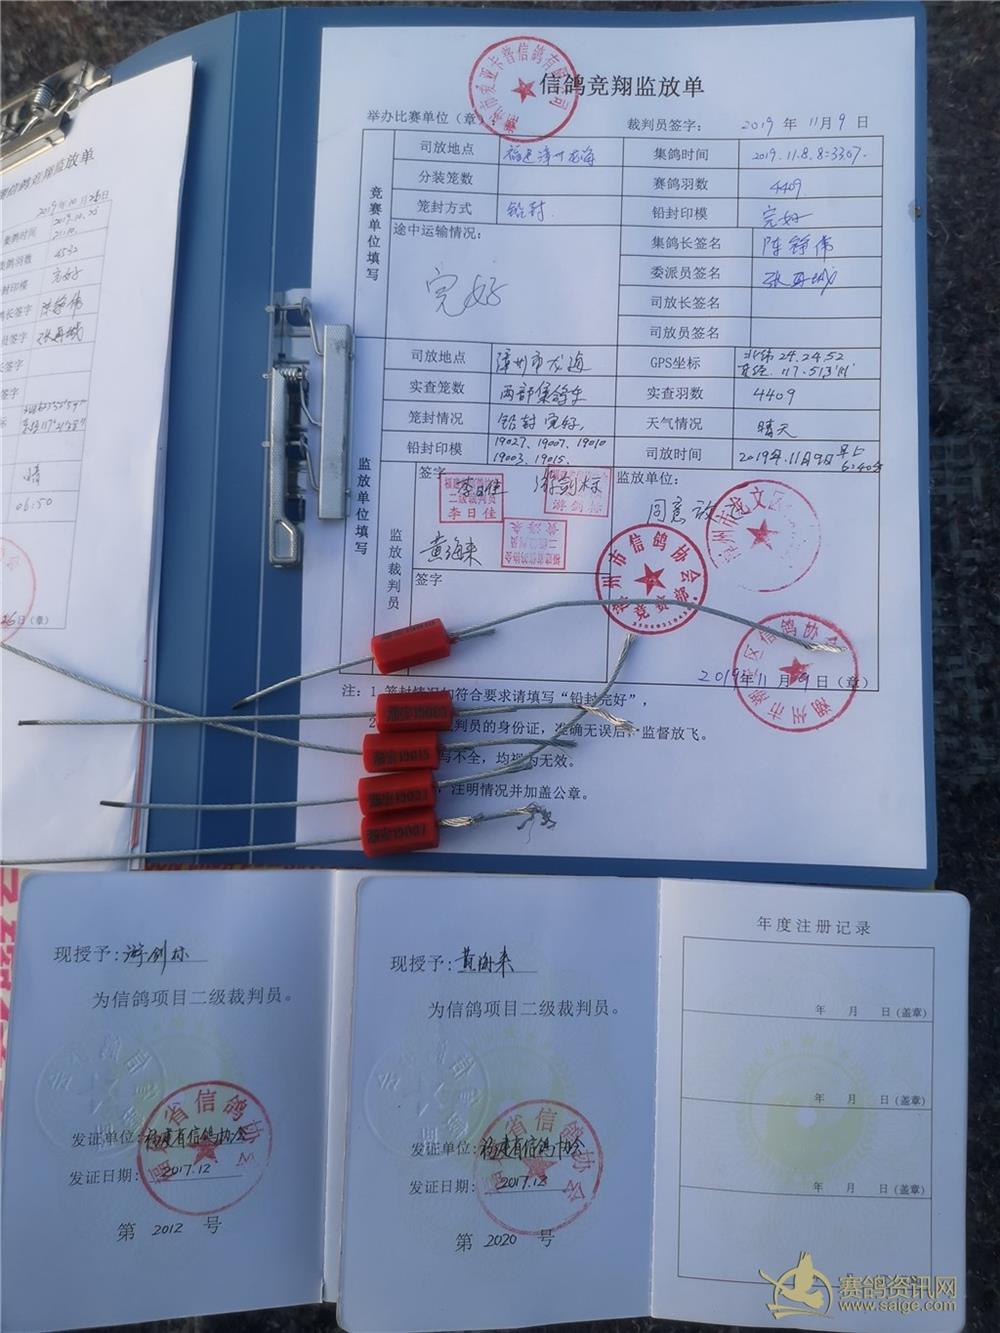 信鸽竞翔监放单
举办比赛单位(章): 裁判员签字: 2019年11月9日
竞赛单位填写
司放地点 福建漳州龙海 集鸽时间 2019.11.8.8:33
分装笼数 赛鸽羽数 4409
笼封方式 铅封. 铅封印模 完好
途中运输情况: 完好 集鸽长签名 陈铮伟
委派员签名 张再城
司放长签名
司放员签名
监放单位填写
司放地点 漳州市龙海 GPS坐标 北纬24.24.52
实查笼数 两部集鸽车 实查羽数 4409
笼封情况 铅封完好, 天气情况 晴天
铅封印模 19027、19007、19010 19003、19015. 司放时间 2019年.11月9日早上6:40分
监放裁判员
签字 李日佳 游剑标 监放单位:
二级裁判员
李日佳
同意放飞
黄海来
签字
州市信鸽协会
竞赛部
2019年11月9日(章)
注:1 笼封情况如符合要求请填写“铅封完好”,
2 判员的身份证,准确无误后,监督放飞。
写不全,均视为无效。
,注明情况并加盖公章。
19010
19003
19015
19007
信鸽竞翔监放单
2019年10月26日
集鸽时间
集鸽羽数 4532
封印模 完好
鸽长签字 陈铮伟
员签字 张再城
长签字
签字
晴
06:50
26日(章)
现授予:游剑标
为信鸽项目二级裁判员。
发证单位:福建省信鸽协会
发证日期: 2017.12
第 2012 号
现授予:黄海来
为信鸽项目二级裁判员。
发证单位:福建省信鸽协会
发证日期: 2017.12
第 2020 号
年度注册记录
年 月 日(盖章)
年 月 日(盖章)
年 月 日(盖章)
赛鸽资讯网
www.saige.com